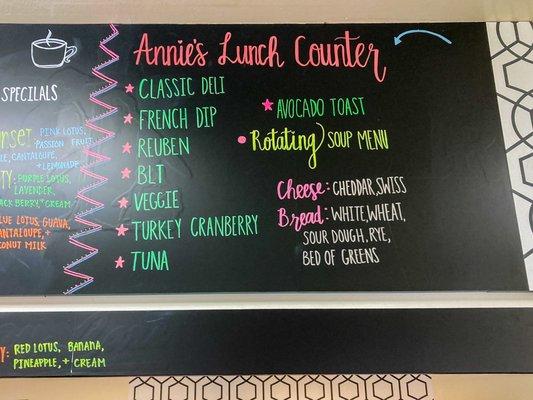 SPECIALS
PINK LOTUS,
PASSION FRUIT
CANTALOUPE,
+ LEMONADE
PURPLE LOTUS,
LAVENDER,
+ CREAM
LOTUS, GUAVA,
+
MILK
Annie's Lunch Counter
★ CLASSIC DELI
★ FRENCH DIP
★ REUBEN
★ BLT
★ VEGGIE
★ TURKEY CRANBERRY
★ TUNA
★ AVOCADO TOAST
• Rotating SOUP MENU
Cheese: CHEDDAR, SWISS
Bread: WHITE, WHEAT,
SOUR DOUGH, RYE,
BED OF GREENS
RED LOTUS, BANANA,
PINEAPPLE, + CREAM